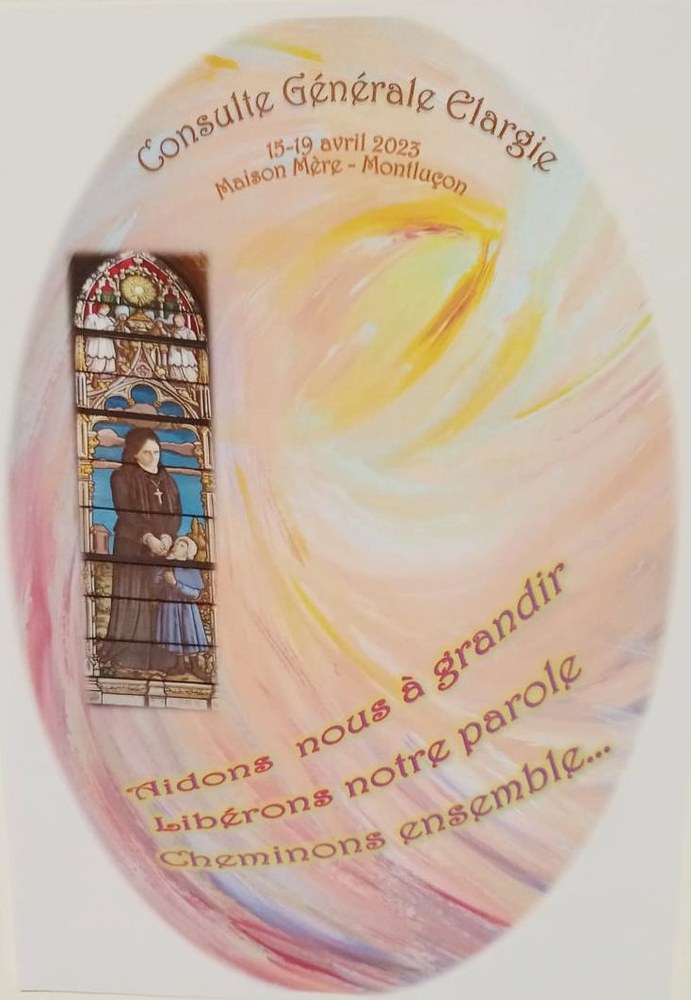 Consulte Générale Elargie
15-19 avril 2023
Maison Mère - Montluçon
Aidons nous à grandir
Libérons notre parole
Cheminons ensemble...